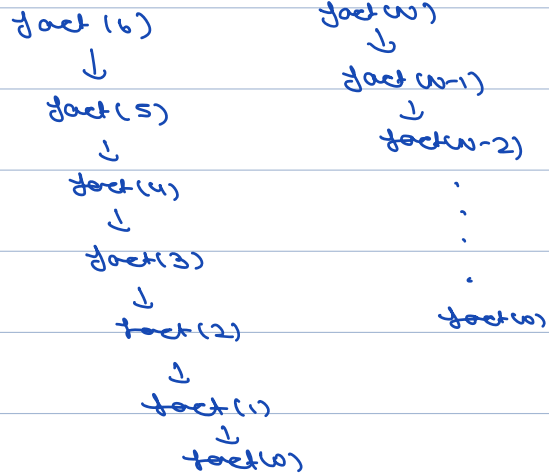 fact(6)
↓
fact(5)
↓
fact(4)
↓
fact(3)
↓
fact(2)
↓
fact(1)
↓
fact(0)
fact(N)
↓
fact(N-1)
↓
fact(N-2)
.
.
.
.
fact(0)